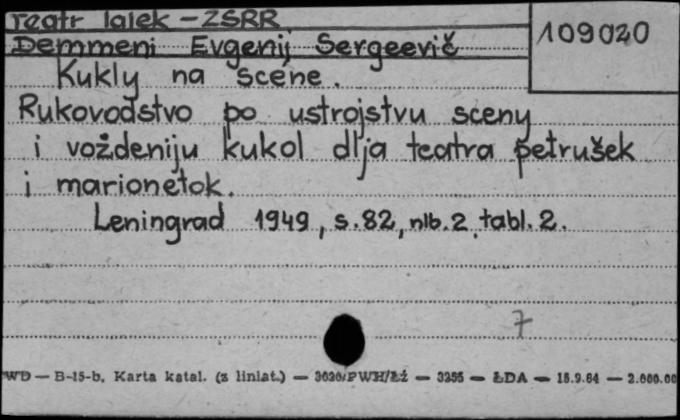 Teatr lalek - ZSRR
109020
Demmeni Evgenij Sergeevič
Kukly na scene.
Rukovodstvo po ustrojstvu sceny
i voždeniju kukol dlja teatra petrušek
i marionetok.
Leningrad 1949, s. 82, nlb. 2, tabl. 2.
7
WD — B-15-b, Karta katal. (z liniat.) — 3030/PWH/Łź — 3255 — ŁDA — 15.9.64 — 2.000.00